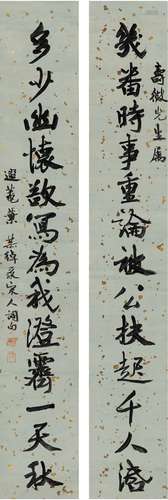 壽微先生屬
幾番時事重論被公扶起千人
多少幽懷欲寫為我澄霽一天秋
遐菴葉恭綽集宋人詞句